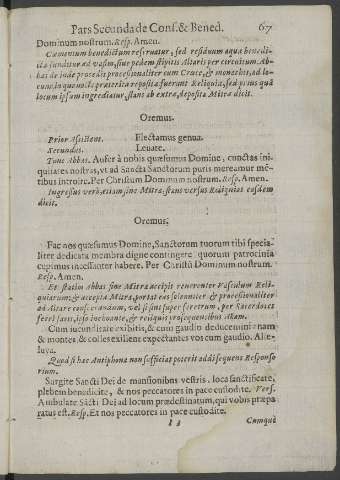 Pars Secunda de Cons. & Bened. 67
Dominum nostrum. Resp. Amen.
Cæmentum benedictum reservatur, sed residuum aquæ benedi-
ctæ funditur ad vasim, sive pedem stipitis Altaris per circuitum. Ab-
bas de inde procedit processionaliter cum Cruce, & monachis, ad lo-
cum, in quo nocte præterita reposita fuerunt Reliquiæ, sed prius quã
locum ipsum ingrediatur, stans ab extra, deposita Mitra dicit.
Oremus.
Prior Assistens. Flectamus genua.
Secundus. Levate.
Tunc Abbas. Aufer à nobis quæsumus Domine, cunctas ini-
quitates nostras, vt ad Sancta Sanctorum puris mereamur mẽ-
tibus introire. Per Christum Dominum nostrum. Resp. Amen.
Ingressus verò, etiam sine Mitra, stans versus Reliquias easdem
dicit.
Oremus.
Fac nos quæsumus Domine, Sanctorum tuorum tibi specia-
liter dedicata membra digne contingere quorum patrocinia
cupimus incessanter habere. Per Christũ Dominum nostrum.
Resp. Amen.
Et statim Abbas sine Mitra accipit reverenter Vasculum Reli-
quiarum; & accepta Mitra, portat eas solemniter & processionaliter
ad Altare consecrandum, vel si sint super feretrum, per Sacerdotes
ferri facit, ipso inchoante, & reliquis prosequentibus Añam.
Cum iucunditate exibitis, & cum gaudio deducemini nam
& montes, & colles exilient expectantes vos cum gaudio. Alle-
luya.
Quod si hæc Antiphona non sufficiat poterit addi sequens Responso
rium.
Surgite Sancti Dei de mansionibus vestris, loca sanctificate,
plebem benedicite, & nos peccatores in pace custodite. Vers.
Ambulate Sãcti Dei ad locum prædestinatum, qui vobis præpa
ratus est. Resp. Et nos peccatores in pace custodite.
I 2 Cumquè